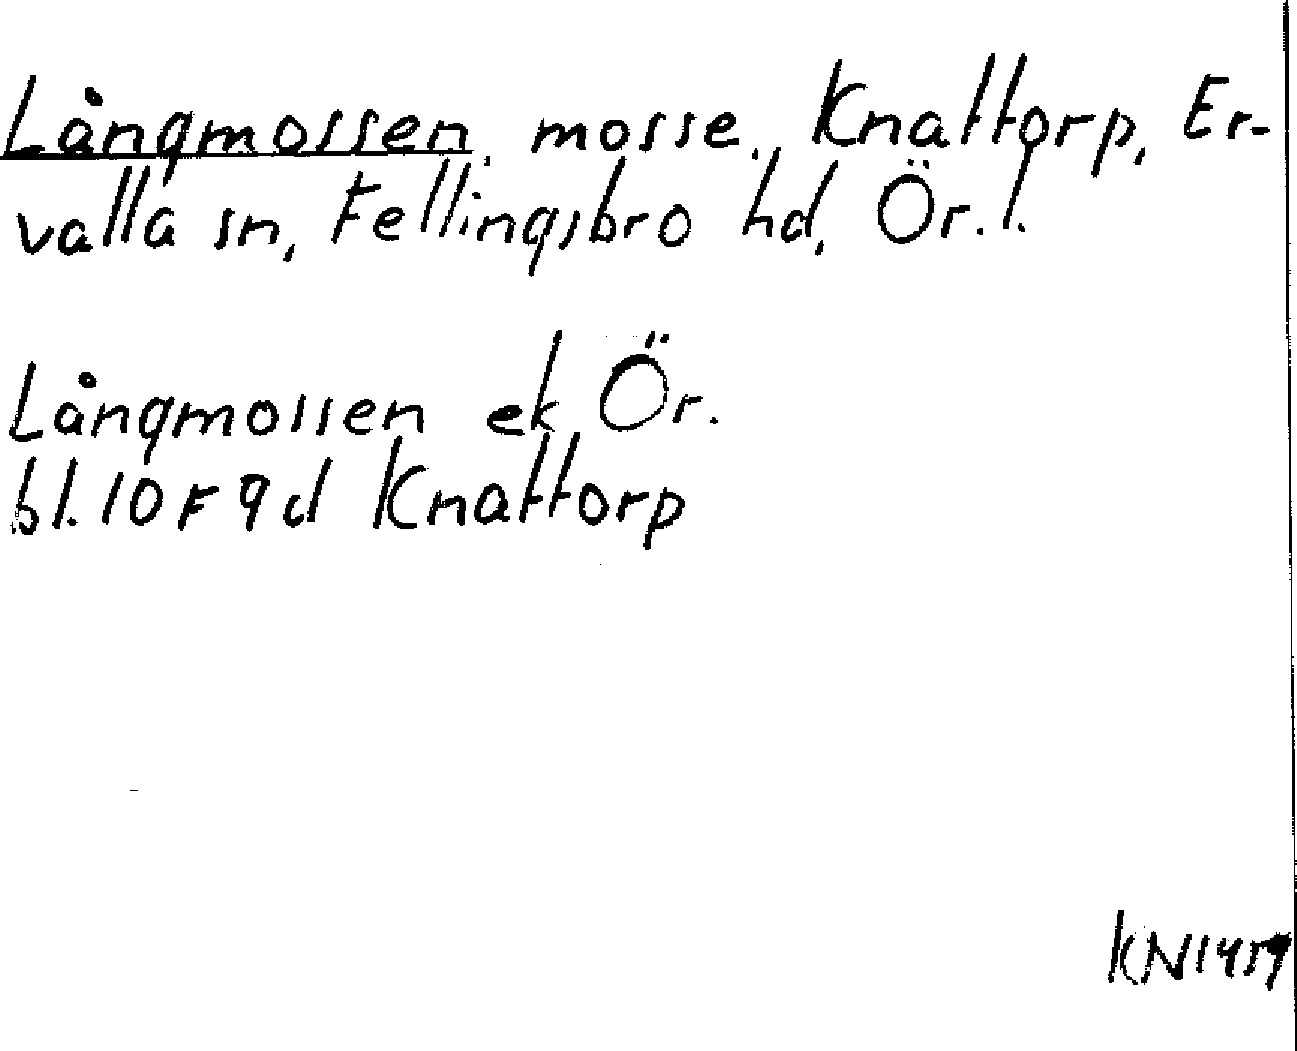 Långmossen, mosse., Knattorp, Er-
valla sn, Fellingsbro hd, Ör. l.
Långmossen ek Ör.
bl. 10 F 9 d Knattorp